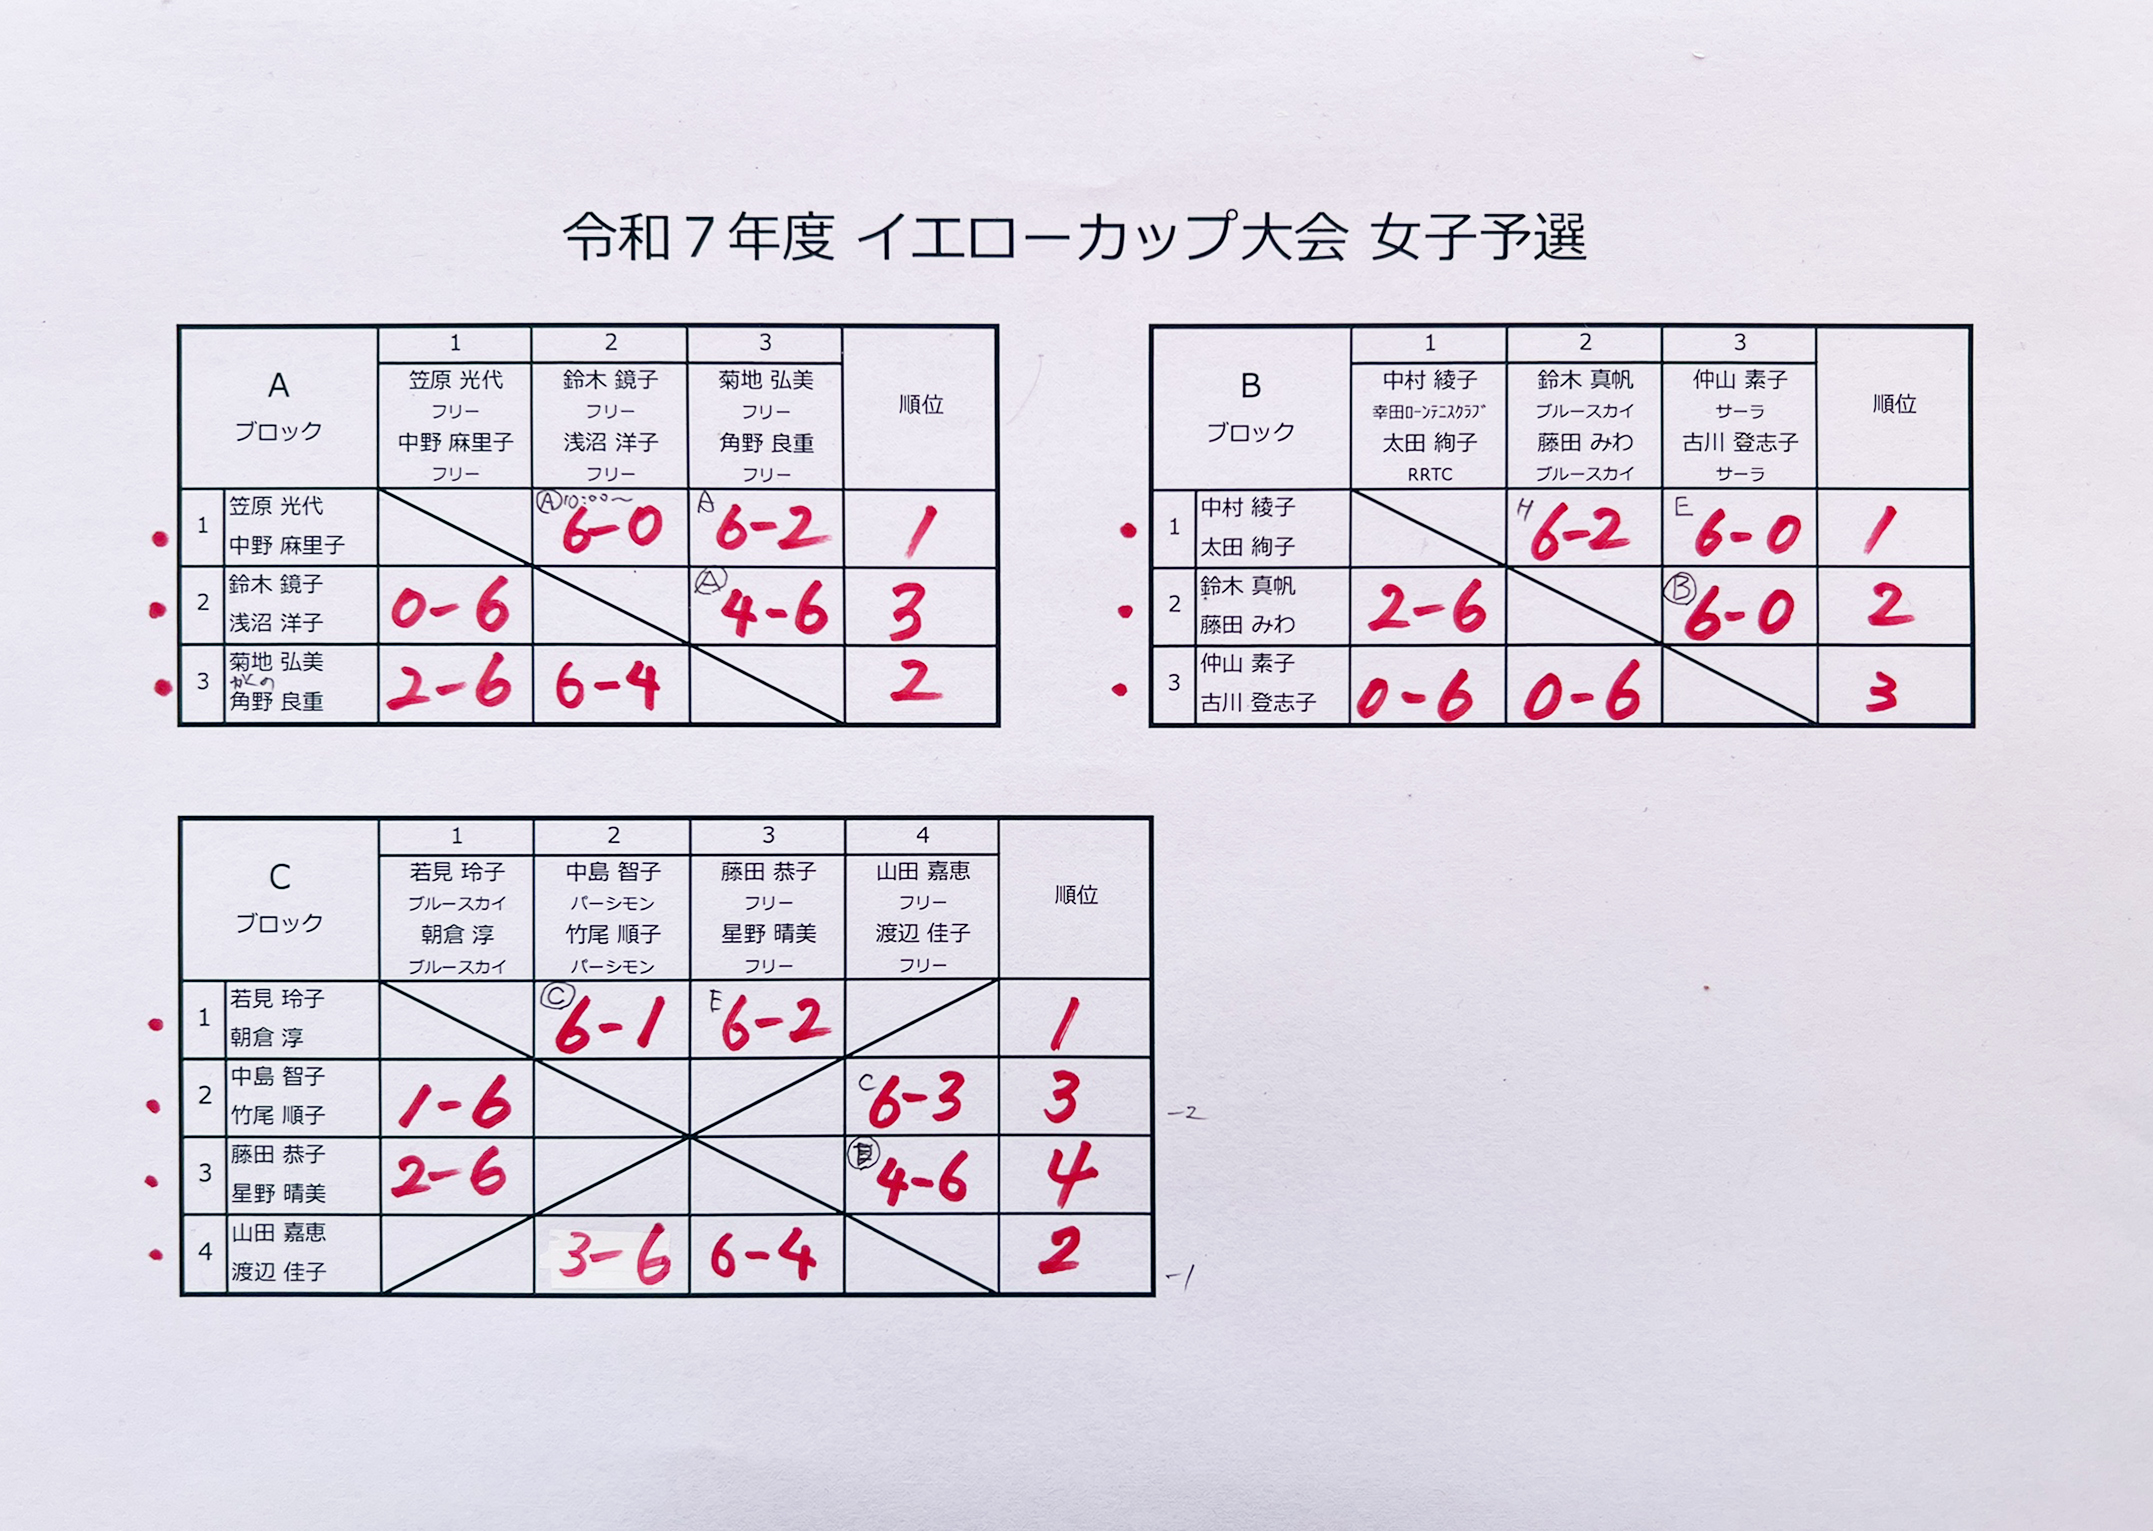 令和７年度 イエローカップ大会 女子予選
A
ブロック
1 2 3
順位
笠原 光代 鈴木 鏡子 菊地 弘美
フリー フリー フリー
中野 麻里子 浅沼 洋子 角野 良重
フリー フリー フリー
1 笠原 光代 中野 麻里子 Ⓐ10:00〜 6-0 A 6-2 1
2 鈴木 鏡子 浅沼 洋子 0-6 Ⓐ 4-6 3
3 菊地 弘美 かくの 角野 良重 2-6 6-4 2
B
ブロック
1 2 3
順位
中村 綾子 鈴木 真帆 仲山 素子
幸田ﾛｰﾝﾃﾆｽｸﾗﾌﾞ ブルースカイ サーラ
太田 絢子 藤田 みわ 古川 登志子
RRTC ブルースカイ サーラ
1 中村 綾子 太田 絢子 H 6-2 E 6-0 1
2 鈴木 真帆 藤田 みわ 2-6 Ⓑ 6-0 2
3 仲山 素子 古川 登志子 0-6 0-6 3
C
ブロック
1 2 3 4
順位
若見 玲子 中島 智子 藤田 恭子 山田 嘉恵
ブルースカイ パーシモン フリー フリー
朝倉 淳 竹尾 順子 星野 晴美 渡辺 佳子
ブルースカイ パーシモン フリー フリー
1 若見 玲子 朝倉 淳 Ⓒ 6-1 E 6-2 1
2 中島 智子 竹尾 順子 1-6 C 6-3 3 -2
3 藤田 恭子 星野 晴美 2-6 4-6 4
4 山田 嘉恵 渡辺 佳子 3-6 6-4 2 -1